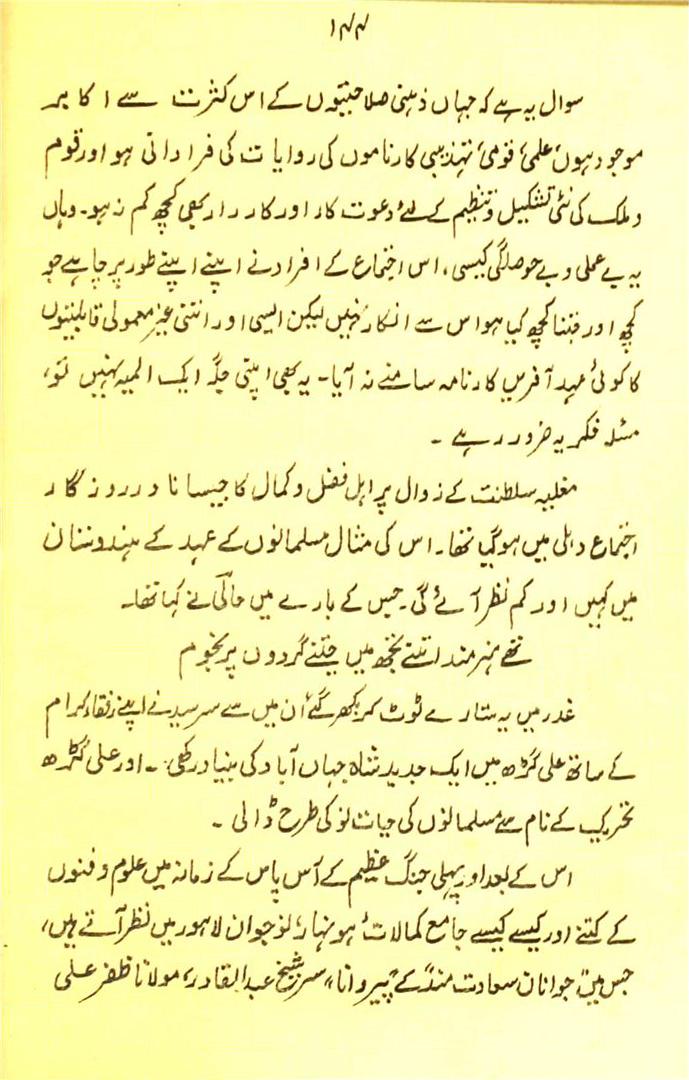 ۱۴۴
سوال یہ ہے کہ جہاں ذہنی صلاحیتوں کے اس کثرت سے اکابر
موجود ہوں، علمی، قومی، تہذیبی کارناموں کی روایات کی فراوانی ہو اور قوم
و ملک کی نئی تشکیل و تنظیم کے لئے دعوت کار اور کاردار بھی کچھ کم نہ ہو۔ وہاں
یہ بے عملی و بے حوصلگی کیسی، اس اجتماع کے افراد نے اپنے اپنے طور پر چاہے جو
کچھ اور جتنا کچھ کیا ہو اس سے انکار نہیں لیکن ایسی اور اتنی غیر معمولی قابلیتوں
کا کوئی عہد آفریں کارنامہ سامنے نہ آیا۔ یہ بھی اپنی جگہ ایک المیہ نہیں تو،
مسئلہ فکریہ ضرور رہے ۔
مغلیہ سلطنت کے زوال پر اہل فضل و کمال کا جیسا نادر روزگار
اجتماع دہلی میں ہو گیا تھا۔ اس کی مثال مسلمانوں کے عہد کے ہندوستان
میں کہیں اور کم نظر آئے گی۔ جس کے بارے میں حالی نے کہا تھا۔
تھے ہنر مند اتنے تجھ میں جتنے گردوں پر نجوم
غدر میں یہ ستارے ٹوٹ کر بکھر گئے، ان میں سے سرسید نے اپنے رفقاء کرام
کے ساتھ علی گڑھ میں ایک جدید شاہ جہاں آباد کی بنیاد رکھی۔ اور علی گڑھ
تحریک کے نام سے مسلمانوں کی حیات نو کی طرح ڈالی ۔
اس کے بعد اور پہلی جنگ عظیم کے آس پاس کے زمانہ میں علوم و فنون
کے کتنے اور کیسے کیسے جامع کمالات، ہونہار، نوجوان لاہور میں نظر آتے ہیں،
جس میں جوانان سعادت مند کے "پیر دانا" سر شیخ عبدالقادر، مولانا ظفر علی